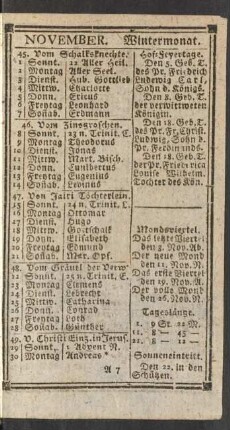 NOVEMBER. Wintermonat.
45. Vom Schalksknechte.
1 Sonnt. 22 Aller Heil.
2 Montag Aller Seel.
3 Dienst. Hub. Gottlieb
4 Mitw. Charlotte
5 Donn. Ericus
6 Freytag Leonhard
7 Soñab. Erdmann
46. Vom Zinsgroschen.
8 Sonnt. 23 n. Trinit. C.
9 Montag Theodorus
10 Dienst. Jonas
11 Mitw. Mart. Bisch.
12 Donn.
13 Freytag Eugenius
14 Soñab. Levinus
47. Von Jairi Töchterlein.
15 Sonnt. 24 n. Trinit. C.
16 Montag Ottomar
17 Dienst. Hugo
18 Mitw. Gottschalk
19 Donn. Elisabeth
20 Freytag Edmund
21 Soñab. Mar. Opf.
48. Vom Gräuel der Verw.
22 Sonnt. 25 n. Trinit. C.
23 Montag Clemens
24 Dienst. Lebrecht
25 Mitw. Catharina
26 Donn. Conrad
27 Freytag Loth
28 Soñab. Günther
49. V. Christi Einz. in Jerus.
29 Sonnt. 1 Advent N.
30 Montag Andreas
A 7
Hof-Feyertage.
Den 5. Geb. T.
des Pr. Friedrich
Ludwig Carl,
Sohn d. Königs.
Den 8. Geb. T.
der verwitweten
Königin.
Den 18. Geb. T.
des Pr. Fr. Christ.
Ludwig, Sohn d.
Pr. Ferdinands.
Den 18. Geb. T.
der Pr. Friederica
Louise Wilhelm.
Tochter des Kön.
Mondsviertel.
Das letzte Viertel
den 3. Nov. Ab.
Der neue Mond
den 11. Nov. N.
Das erste Viertel
den 19. Nov. A.
Der volle Mond
den 26. Nov. N.
Tageslänge.
1. 9 St. 22 M.
11. 8 - 45 -
21. 8 - 12. -
Sonneneintritt.
Den 22. in den
Schützen.